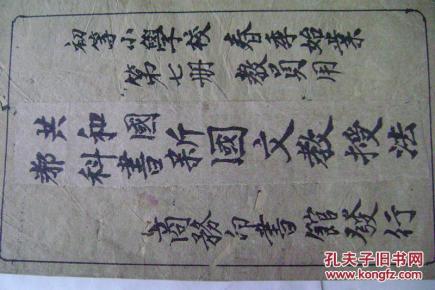 初等小學校 春季始業
第七冊 教員用
共和國
教科書新國文教授法
商務印書館發行
孔夫子旧书网
www.kongfz.com